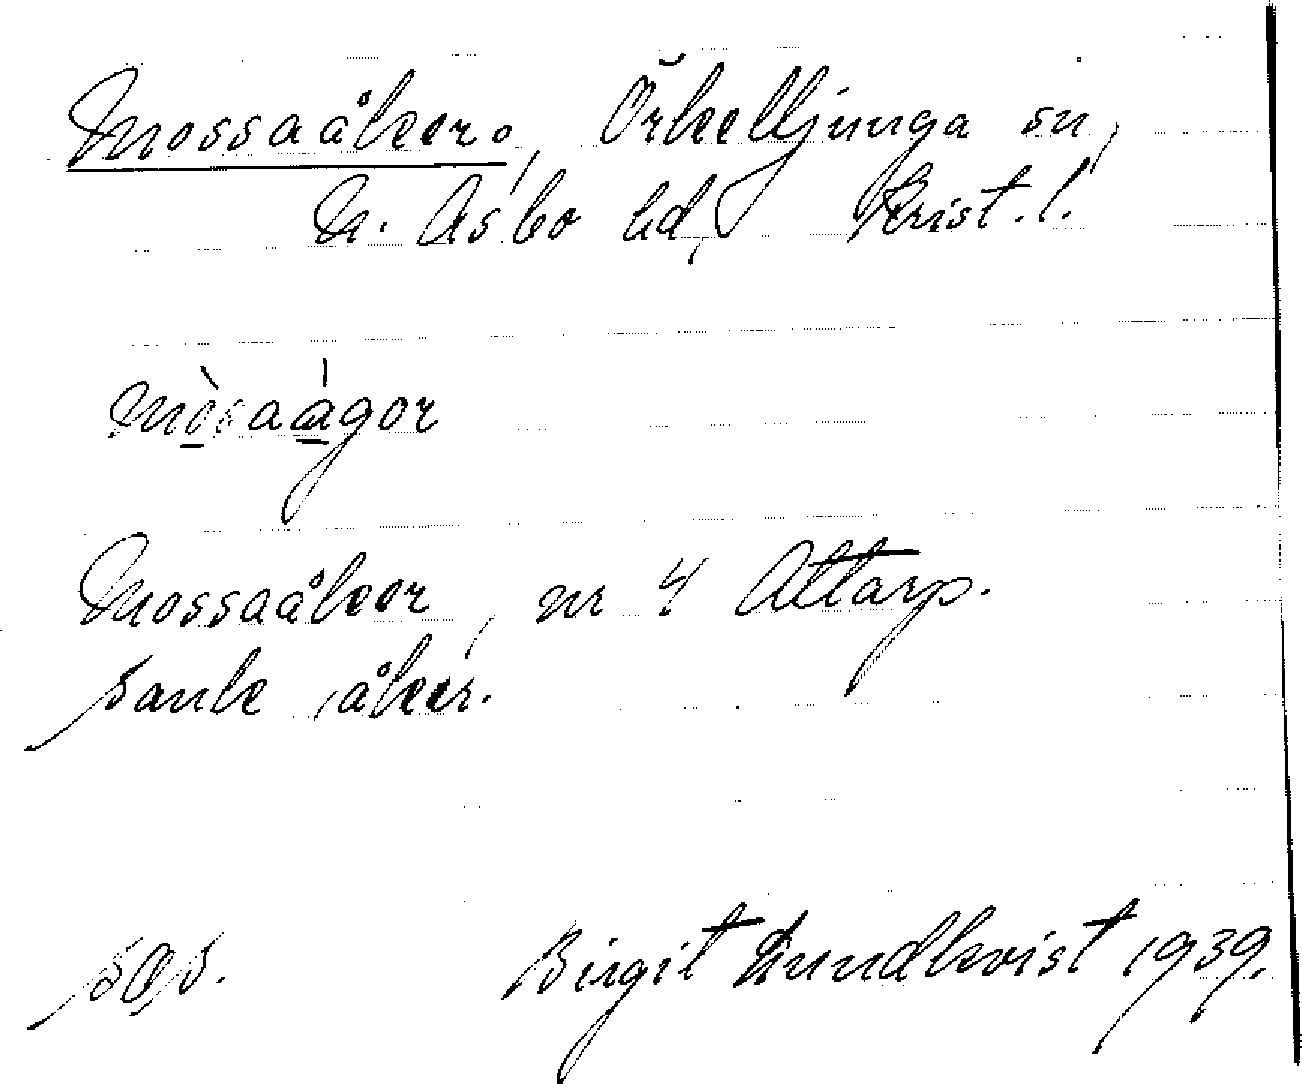 Mossaåker, Örkelljunga sn,
N. Åsbo hd, Krist. l.
mòsaágor
Mossaåkor, nr 4 Attarp.
sank åker.
Birgit Lundkvist 1939.